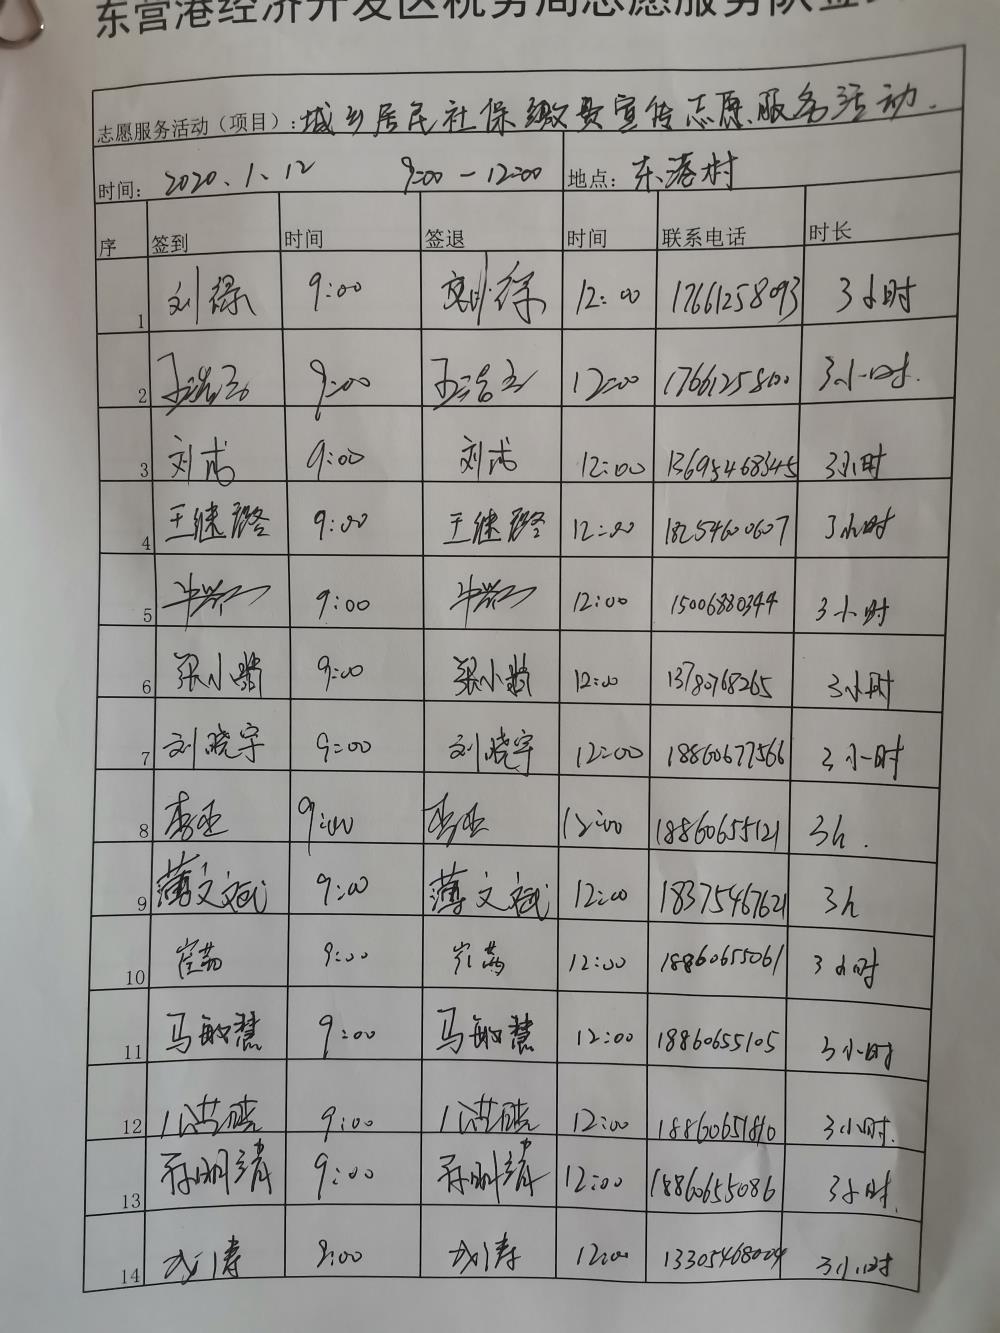 东营港经济开发区税务局志愿服务队签
志愿服务活动（项目）：城乡居民社保缴费宣传志愿服务活动.
时间： 2020.1.12 9:00-12:00 地点：东港村
序 签到 时间 签退 时间 联系电话 时长
1 刘 9:00 刘 12:00 17661258093 3小时
2 王浩 9:00 王浩 12:00 1766125800 3小时.
3 刘 9:00 刘 12:00 13695468345 3小时
4 王继 9:00 王继 12:00 18254600607 3小时
5 9:00 12:00 15006880344 3小时
6 张小 9:00 张小 12:00 13780768265 3小时
7 刘晓宇 9:00 刘晓宇 12:00 18860677566 3小时
8 9:00 12:00 18860655121 3h.
9 薄文斌 9:00 薄文斌 12:00 18375467621 3h
10 崔 9:00 崔 12:00 18860655061 3小时
11 马敏慧 9:00 马敏慧 12:00 18860655105 3小时
12 9:00 12:00 18860651810 3小时.
13 孙明靖 9:00 孙明靖 12:00 18860655086 3小时.
14 9:00 12:00 13305468009 3小时